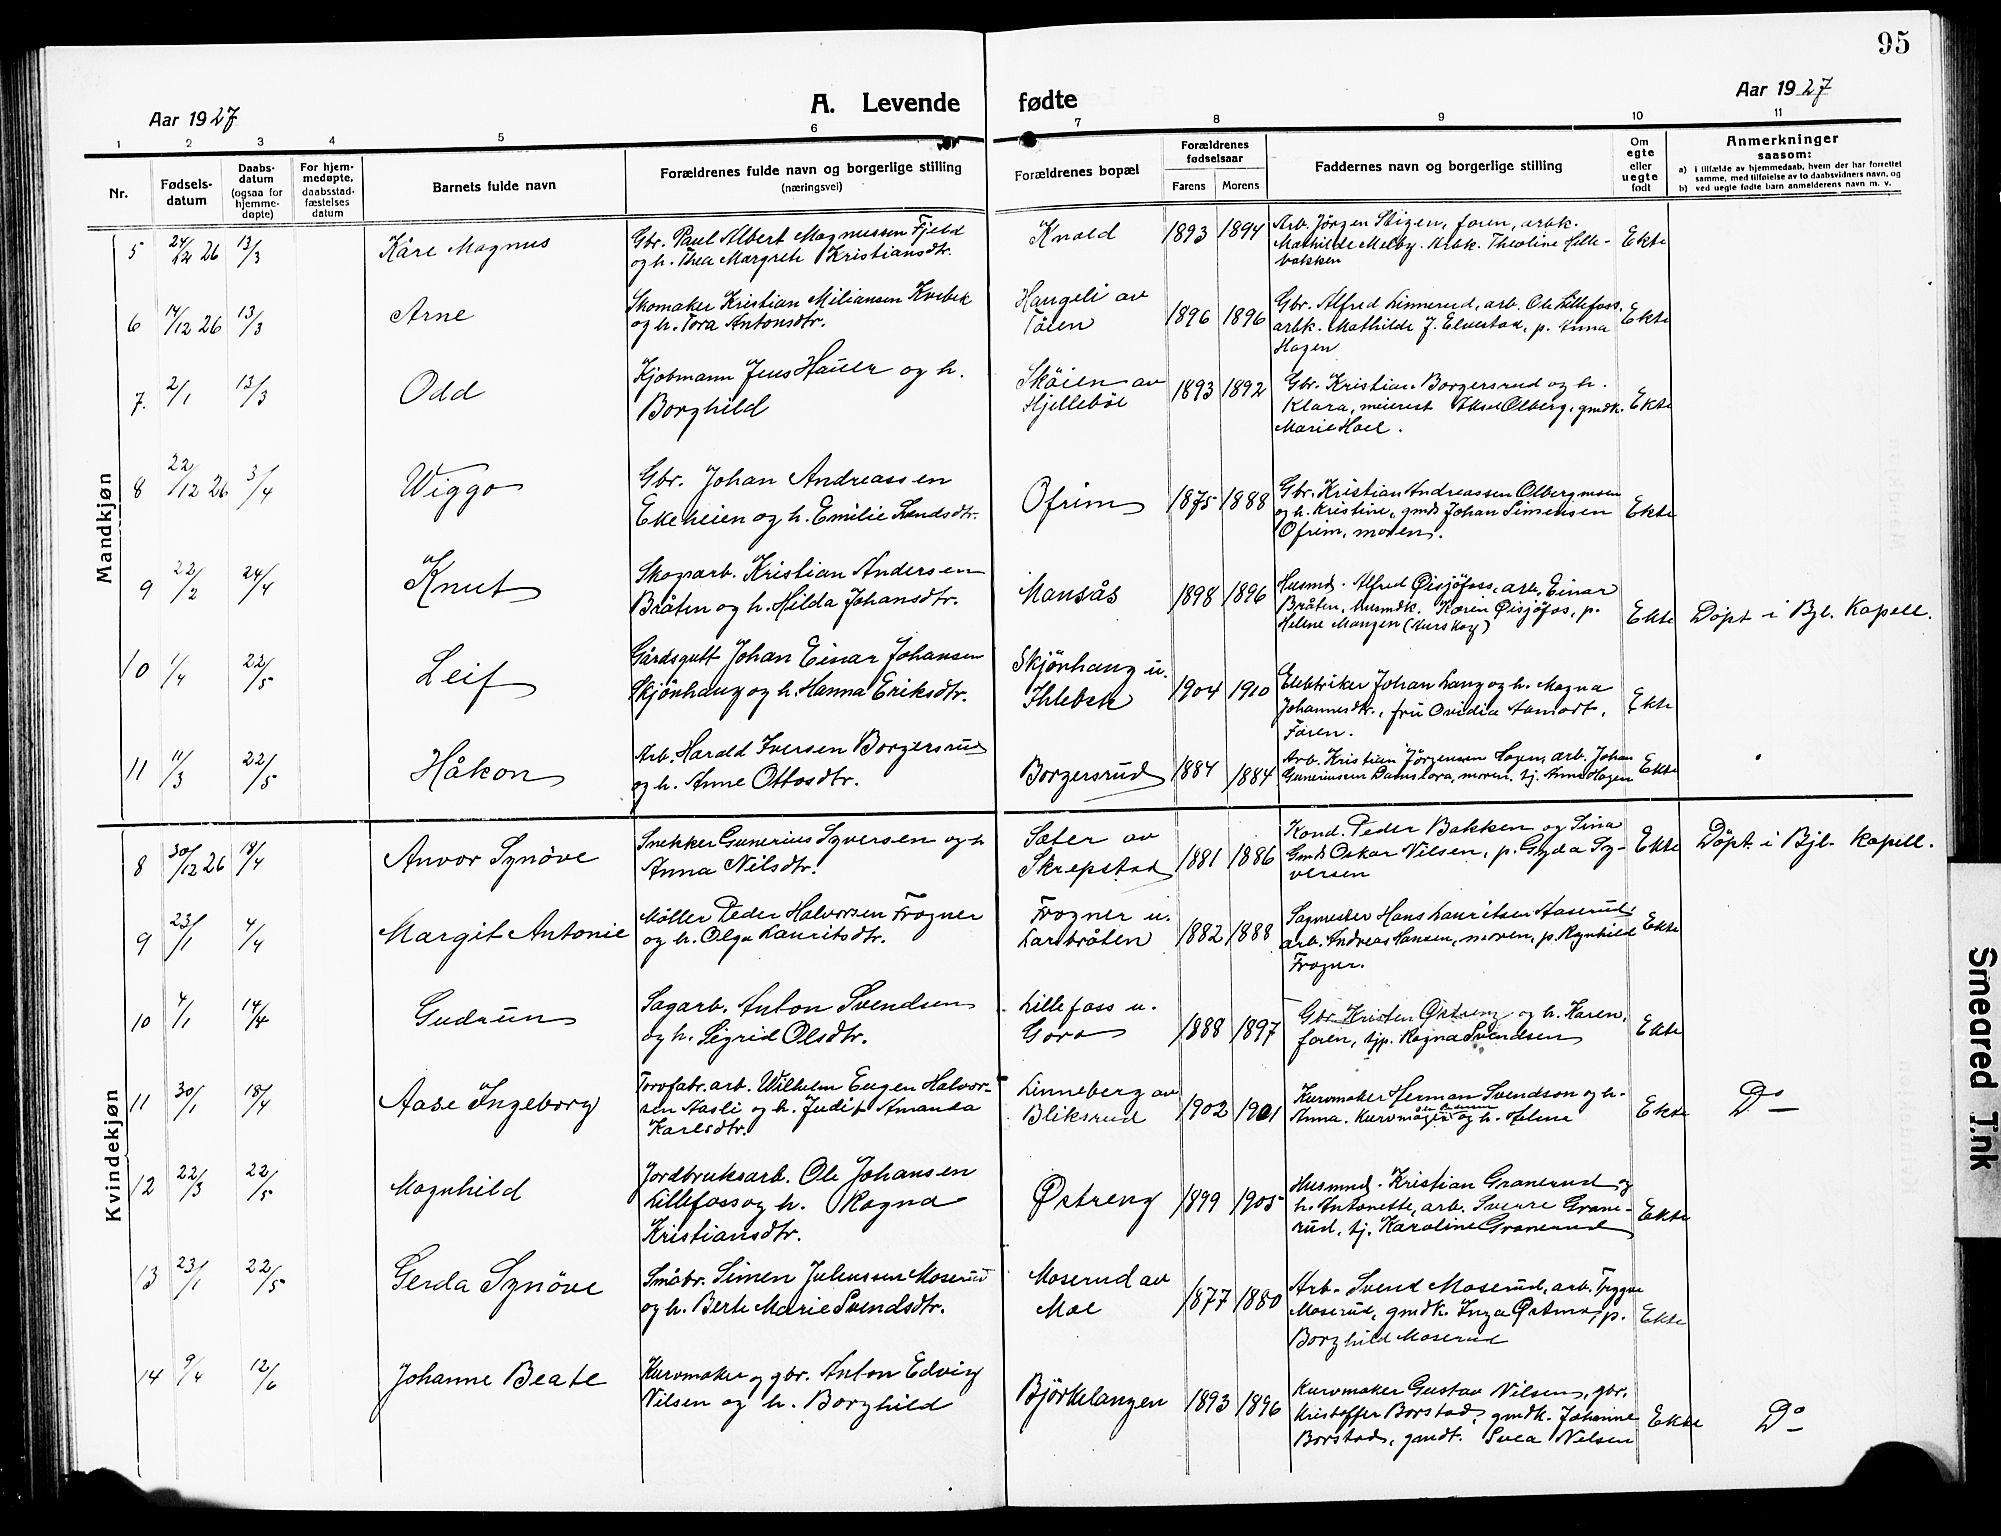 95
Aar 1927
A. Levende fødte
Aar 1927
1 2 3 4 5 6 7 8 9 10 11
Nr.
Fødsels-
datum
Daabs-
datum
(ogsaa for
hjemme-
døpte)
For hjem-
medøpte,
daabsstad-
fæstelses
datum
Barnets fulde navn
Forældrenes fulde navn og borgerlige stilling
(næringsvei)
Forældrenes bopæl
Forældrenes
fødselsaar
Farens Morens
Faddernes navn og borgerlige stilling
Om
egte
eller
uegte
født
Anmerkninger
saasom:
a) i tilfælde av hjemmedaab, hvem der har forrettet
samme, med tilføielse av to daabsvidners navn, og
b) ved uegte fødte barn anmelderens navn m. v.
Mandkjøn
5 24/12 26 13/3 Kåre Magnus
Gbr. Paul Albert Magnussen Fjeld
og h. Thea Margreth Kristiansdtr.
Knold 1893 1894
Arb. Jørgen Stigen, faren, arbk.
Mathilde Melby. Arbk. Theoline Lille-
bakken
Ekte
6 14/12 26 13/3 Arne
Skomaker Kristian Miliansen Kvebek
og h. Tora Antonsdtr.
Haugeli av
Töien
1896 1896
Gbr. Alfred Linnerud, arb. Ole Lillefoss,
arbk. Mathilde J. Elvestad, p. Anna
Hagen
Ekte
7. 2/1 13/3 Odd
Kjøbmann Jens Hauer og h.
Borghild
Sköien av
Hjellebøl
1893 1892
Gbr. Kristian Borgersrud og h.
Klara, meierest Olberg, gmdk.
Marie Hoel.
Ekte
8 22/12 26 3/4 Wiggo
Gbr. Johan Andreassen
Ekeheien og h. Emilie Lundsdtr.
Ofrim 1875 1888
Gbr. Kristian Andreassen Olberg moen
og h. Kristine, gmd. Johan Simensen
Ofrim, moren.
Ekte
9 22/2 24/4 Knut
Skogarb. Kristian Andersen
Bråten og h. Hilda Johansdtr.
Mansås 1898 1896
Husmd. Alfred Øisjöfoss, arb. Einar
Bråten, husmdk. Karen Øisjöfos, p.
Helene Mangen (Aurskog)
Ekte
Döpt i Bjl. Kapell.
10 1/4 22/5 Leif
Gårdsgutt Johan Einar Johansen
Skjönhaug og h. Hanna Eriksdtr.
Skjönhaug u.
Ihlebek
1904 1910
Elektriker Johan Lang og h. Magna
Johannesdtr., fru Ovidia Aamodt,
Faren.
Ekte
11 11/3 22/5 Håkon
Arb. Harald Iversen Borgersrud
og h. Anne Ottosdtr.
Borgersrud 1884 1884
Arb. Kristian Jörgensen Hagen, arb. Johan
Gunerius Damslora, moren. tj. Anna Hagen
Ekte
Kvindekjøn
8 30/12 26 18/4 Anvor Synöve
Snekker Gunerius Syversen og h
Anna Nilsdtr.
Sæter av
Skrepstad
1881 1886
Kond. Peder Bakken og Sina
Gmd. Oskar Nilsen, p. Gyda Sy-
versen
Ekte
Döpt. i Bjl. Kapell.
9 23/1 4/4 Margit Antonie
Möller Peder Halvorsen Frogner
og h. Olga Lauritsdtr.
Frogner u.
Larbråten
1882 1888
Sagmester Hans Lauritsen Aaserud,
arb. Andreas Hansen, moren, p. Ragnhild
Frogner.
Ekte
10 4/1 14/4 Gudrun
Sagarb. Anton Svendsen
og h. Sigrid Olsdtr.
Lillefoss u.
Gora
1888 1897
Gbr. Kristen Östreng og h. Karen,
faren, tjp. Ragna Svendsen
Ekte
11 30/1 18/4 Aase Ingeborg
Torvfabr. arb. Wilhelm Eugen Halvor-
sen Aasli og h. Judit Amanda
Karlsdtr.
Linneberg av
Bliksrud
1902 1901
Kurvmaker Herman Svendson og h.
Anna. Kurvmager og h. Helene
Ekte
Do —
12 22/3 22/5 Magnhild
Jordbruksarb. Ole Johansen
Lillefoss og h. Ragna
Kristiansdtr.
Østreng 1899 1905
Husmnd. Kristian Granerud og
h. Antonette, arb. Sverre Grane-
rud, tj. Karoline Granerud
Ekte
13 23/1 22/5 Gerda Synöve
Småbr. Simen Juliussen Moserud
og h. Berte Marie Svendsdtr.
Moserud av
Moe
1877 1880
Arb. Svend Moserud, arb. Trygve
Moserud, gmdk. Inga Østmo, p.
Borghild Moserud
Ekte
14 9/4 12/6 Johanne Beate
Kurvmaker og gbr. Anton Edvin
Nilsen og h. Borghild
Björkelangen 1893 1896
Kurvmaker Gustav Nilsen, gbr.
Kristoffer Borstad, gmdk. Johanne
Borstad, gmdt. Svea Nilsen
Ekte
Do —
Smeared T.nk